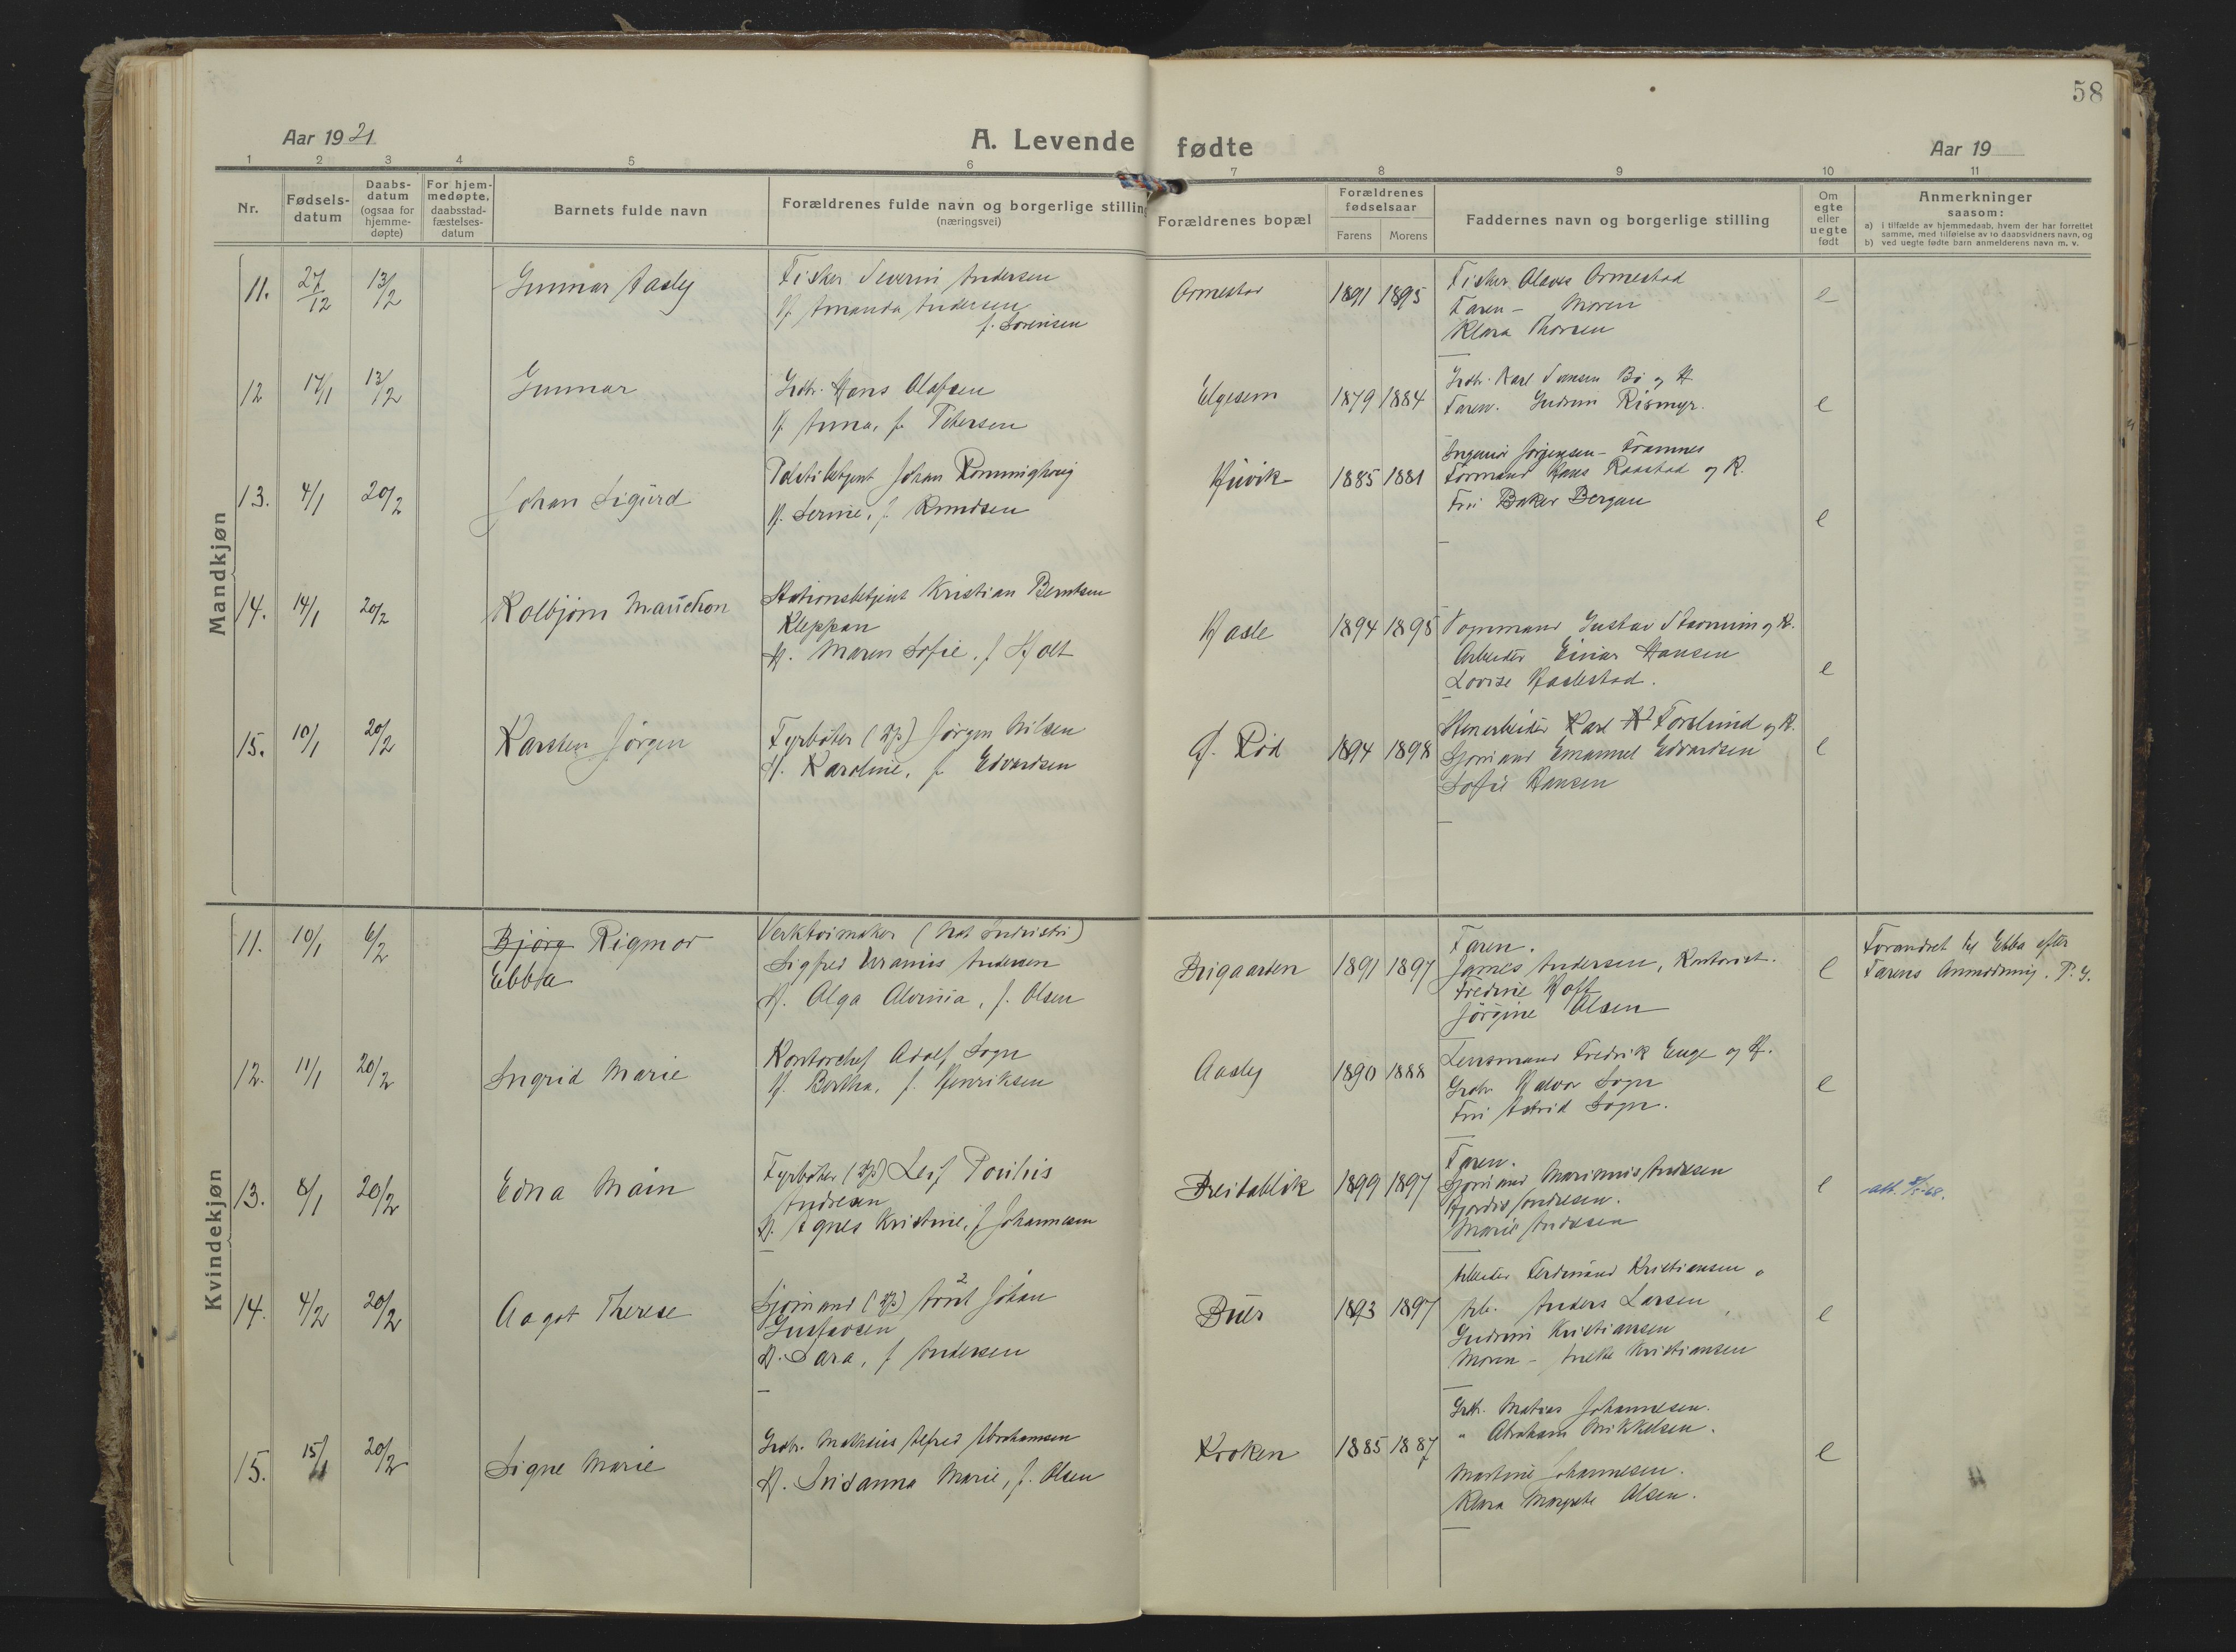 58
Aar 1921
A. Levende fødte
Aar 19
1 2 3 4 5 6 7 8 9 10 11
Nr.
Fødsels-
datum
Daabs-
datum
(ogsaa for
hjemme-
døpte)
For hjem-
medøpte,
daabsstad-
fæstelses-
datum
Barnets fulde navn
Forældrenes fulde navn og borgerlige stilling
(næringsvei)
Forældrenes bopæl
Forældrenes
fødselsaar
Farens Morens
Faddernes navn og borgerlige stilling
Om
egte
eller
uegte
født
Anmerkninger
saasom:
a) i tilfælde av hjemmedaab, hvem der har forrettet
samme, med tilføielse av to daabsvidners navn, og
b) ved uegte fødte barn anmelderens navn m. v.
Mandkjøn
11. 27/12 13/2 Gunnar Aasly
Fisker Severin Andersen
H. Amanda Andersen
f. Sørensen
Ormestad 1891 1895
Fisker Olaves Ormestad
Faren - Moren
Klara Thorsen
e
12 17/1 13/2 Gunnar
Grdbr. Hans Olafsen
H. Anna, f. Petersen
Elgesem 1879 1884
Grdbr. Karl Svensen Bø og H
Faren. Gudrun Rismyr.
e
13. 4/1 20/2 Johan Sigurd
Politibetjent Johan Rønninghoug
H. Serine, f. Knudsen
Huvik 1885 1881
Ingeniør Jørgensen - Framnes
Formand Hans Raastad og H.
Fru Baker Bergan
e
14. 14/1 20/2 Kolbjørn Mauchon
Stationsbetjent Kristian Berntsen
Kleppan
H. Maren Sofie, f. Holt
Hasle 1894 1895
Vognmand Gustav Stavnum og H.
Arbeider Einar Hansen
Lovise Haslestad.
e
15. 10/1 20/2 Karsten Jørgen
Fyrbøter Jørgen Nilsen
H. Karoline, f. Edvardsen
G. Rød 1894 1898
Stenarbeider Karl Forslund og H.
Sjømand Emanuel Edvardsen
Sofie Hansen
e
Kvindekjøn
11. 10/1 6/2 Bjørg Rigmor
Ebba
Verktøimaker (Nat Industri)
Sigfred Uranius Andersen
H. Olga Alvinia, f. Olsen
Brigaarden 1891 1897
Faren.
James Andersen, Kontorist.
Fredrie Hoff
Jørgine Olsen
e
Forandret til Ebba efter
Farens Anmodning. P. G.
12. 11/1 20/2 Ingrid Marie
Kontorchef Adolf Sogn
H. Bertha, f. Henriksen
Aasly 1890 1888
Lensmand Fredrik Enge og H.
Grdbr. Halvor Sogn
Fru Astrid Sogn.
e
13. 8/1 20/2 Edna Main
Fyrbøter Leif Poulius
Andresen
H. Agnes Kristine, f Johannesen
Breidablik 1899 1897
Faren.
Sjømand Marinius Andresen
Hjørdis Andresen.
Marie Andresen
e
att. 8/5-68.
14. 4/2 20/2 Aagot Therese
Sjømand Arnt Johan
Gustavsen
H. Sara, f Andersen
Buer 1893 1897
Arbeider Ferdinand Kristiansen
Arb. Anders Larsen
Gudrun Kristiansen
Moren - Kristiansen
e
15. 15/1 20/2 Signe Marie
Grdbr. Mathius Alfred Abrahamsen
H. Susanna Marie, f. Olsen
Kroken 1885 1887
Grdbr. Matias Johannesen.
" Abraham Mikkelsen.
Martine Johannesen.
Klara Margrete Olsen.
e